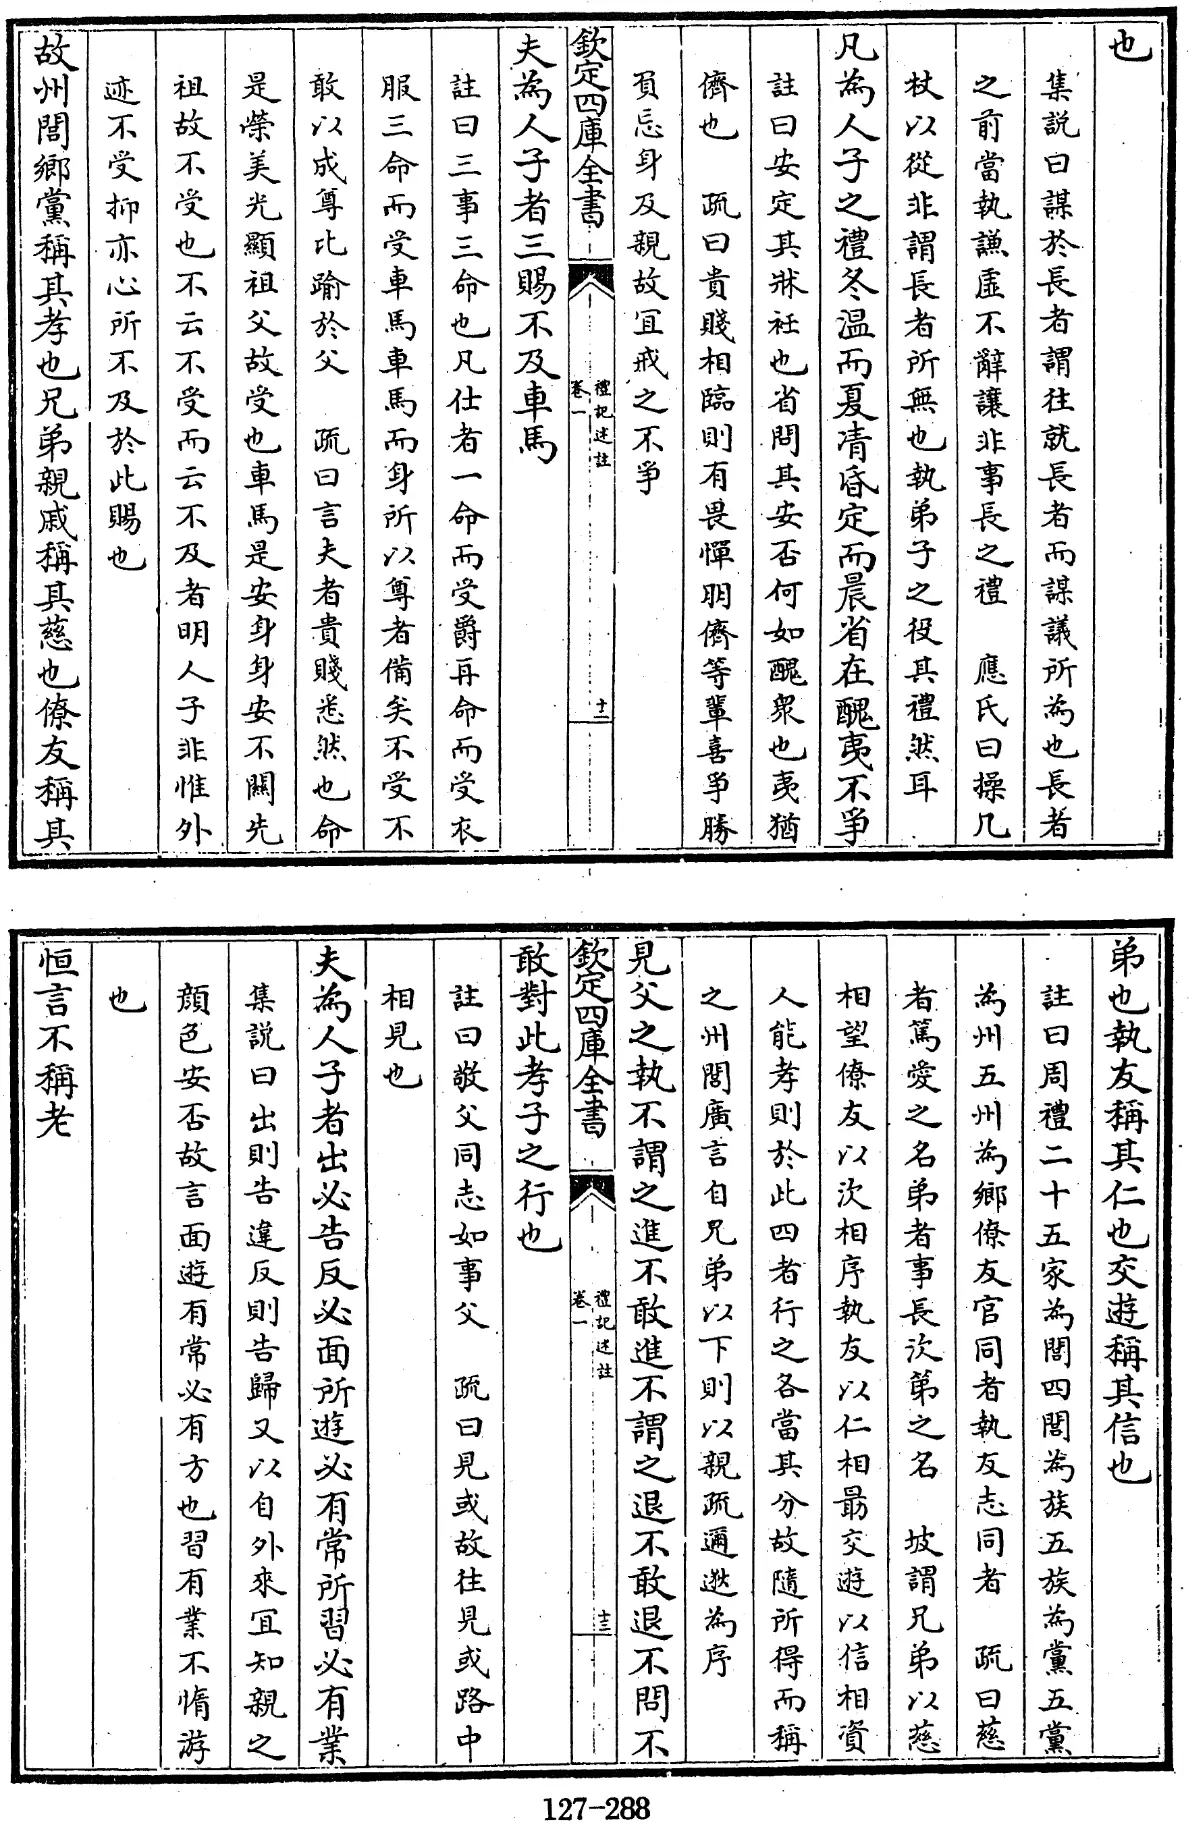 也
集説曰謀於長者謂往就長者而謀議所為也長者
之前當執謙虛不辭讓非事長之禮　應氏曰操几
杖以從非謂長者所無也執弟子之役其禮然耳
凡為人子之禮冬温而夏凊昏定而晨省在醜夷不爭
註曰安定其牀衽也省問其安否何如醜衆也夷猶
儕也　疏曰貴賤相臨則有畏憚朋儕等輩喜爭勝
負忘身及親故宜戒之不爭
欽定四庫全書
禮記述註
卷一
十二
夫為人子者三賜不及車馬
註曰三事三命也凡仕者一命而受爵再命而受衣
服三命而受車馬車馬而身所以尊者備矣不受不
敢以成尊比踰於父　疏曰言夫者貴賤悉然也命
是榮美光顯祖父故受也車馬是安身身安不關先
祖故不受也不云不受而云不及者明人子非惟外
迹不受抑亦心所不及於此賜也
故州閭鄉黨稱其孝也兄弟親戚稱其慈也僚友稱其
弟也執友稱其仁也交遊稱其信也
註曰周禮二十五家為閭四閭為族五族為黨五黨
為州五州為鄉僚友官同者執友志同者　疏曰慈
者篤愛之名弟者事長次第之名　坡謂兄弟以慈
相望僚友以次相序執友以仁相勗交遊以信相資
人能孝則於此四者行之各當其分故隨所得而稱
之州閭廣言自兄弟以下則以親疏邇逖為序
見父之執不謂之進不敢進不謂之退不敢退不問不
欽定四庫全書
禮記述註
卷一
十三
敢對此孝子之行也
註曰敬父同志如事父　疏曰見或故往見或路中
相見也
夫為人子者出必告反必面所遊必有常所習必有業
集説曰出則告違反則告歸又以自外來宜知親之
顔色安否故言面遊有常必有方也習有業不惰游
也
恒言不稱老
127-288